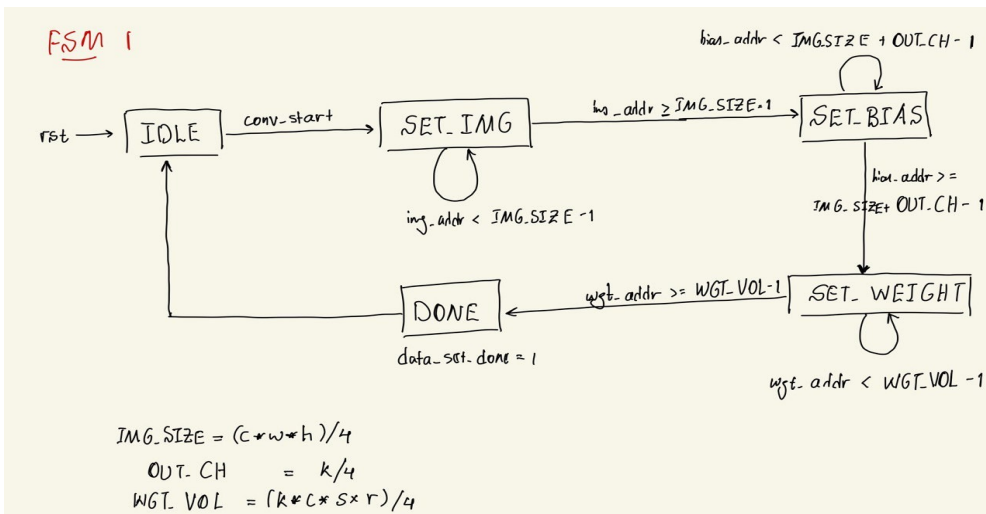 FSM 1
bias_addr < IMG_SIZE + OUT_CH - 1
rst
IDLE
conv_start
SET_IMG
≥ IMG_SIZE-1
SET_BIAS
img_addr < IMG_SIZE - 1
bias_addr >=
IMG_SIZE + OUT_CH - 1
DONE
wgt_addr >= WGT_VOL-1
SET_WEIGHT
data_set_done = 1
wgt_addr < WGT_VOL - 1
IMG_SIZE = (c*w*h)/4
OUT_CH = k/4
WGT_VOL = (k*c*s*r)/4